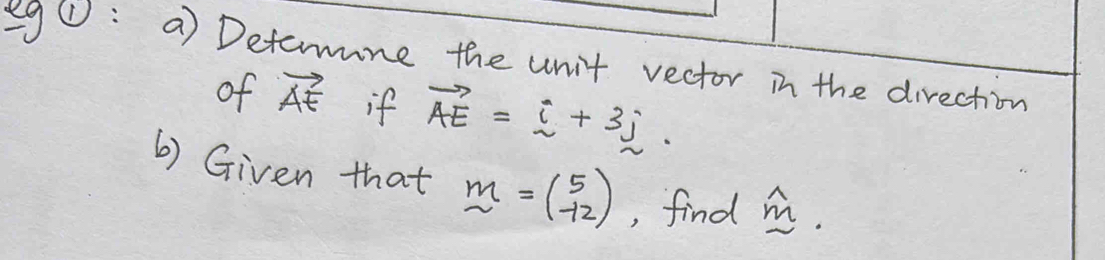 eg ①: a) Determine the unit vector in the direction
of \(\overrightarrow{AE}\) if \(\overrightarrow{AE}\) = ḭ + 3j̰.
b) Given that m̰ = \(\binom{5}{-12}\), find \(\hat{m̰}\).